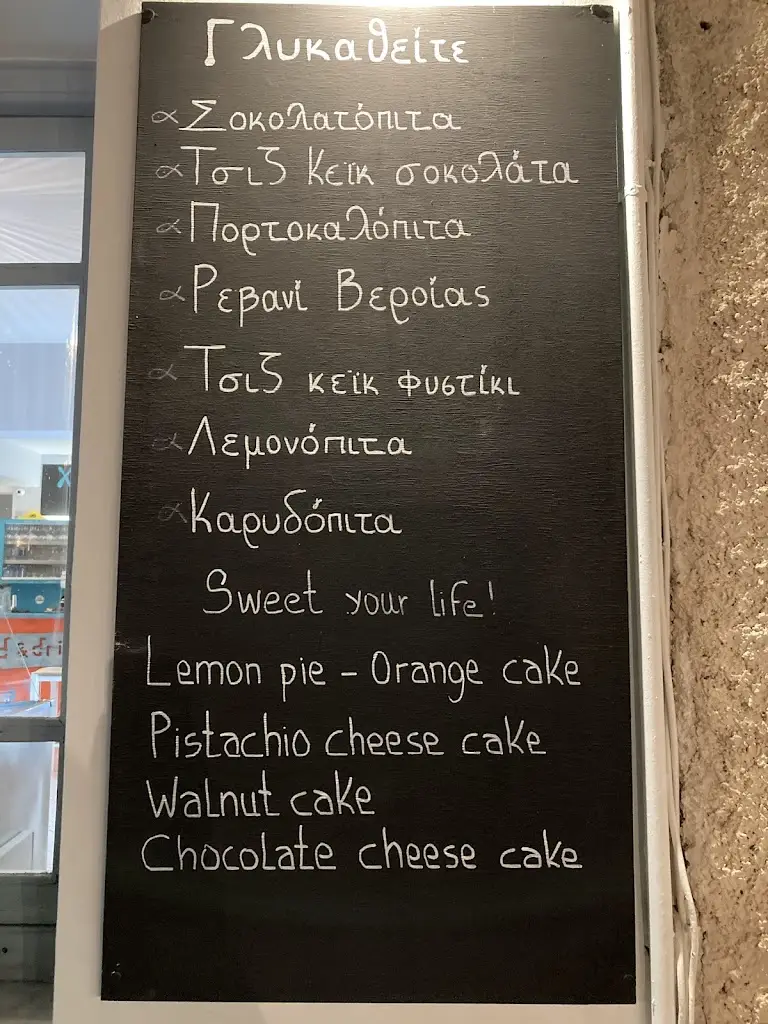 Γλυκαθείτε
Σοκολατόπιτα
Τσιζ κεϊκ σοκολάτα
Πορτοκαλόπιτα
Ρεβανί Βεροίας
Τσιζ κεϊκ φυστίκι
Λεμονόπιτα
Καρυδόπιτα
Sweet your life!
Lemon pie - Orange cake
Pistachio cheese cake
Walnut cake
Chocolate cheese cake